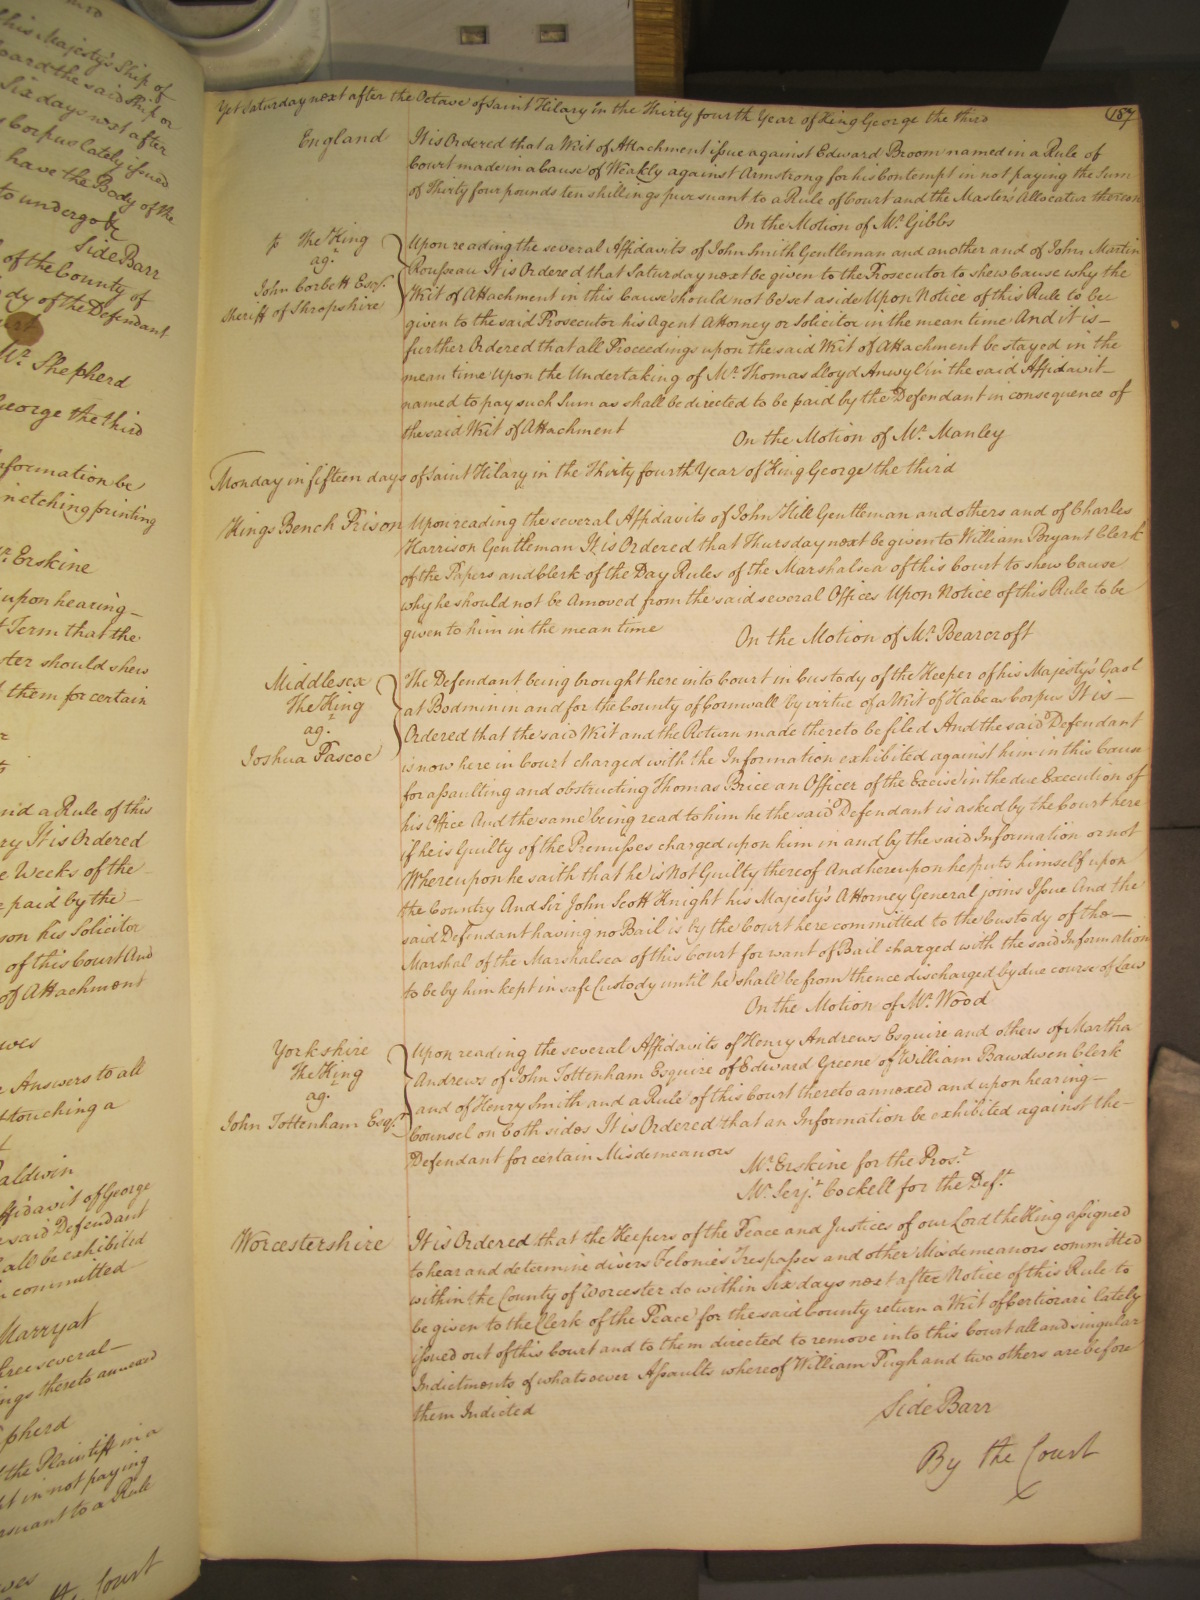 his Majesty's Ship of
board the said Ship or
Six days next after
Corpus lately issued
have the Body of the
to undergo &c
Side Barr
of the County of
dy of the Defendant
Mr. Shepherd
George the third
nformation be
n etching printing
Mr. Erskine
upon hearing
t Term that the
ster should shew
them for certain
nid a Rule of this
ry It is Ordered
e Weeks of the
e paid by the
son his Solicitor
of this Court And
of Attachment
Answers to all
touching a
aldwin
ffidavit of George
e said Defendant
all be exhibited
committed
Marryat
three several
ngs thereto annexed
pherd
the Plaintiff in a
pt in not paying
rsuant to a Rule
Court
Yet Saturday next after the Octave of Saint Hilary in the Thirty fourth Year of King George the third
157
England
It is Ordered that a Writ of Attachment issue against Edward Broom named in a Rule of
Court made in a Cause of Weakly against Armstrong for his Contempt in not paying the Sum
of Thirty four pounds ten shillings pursuant to a Rule of Court and the Master's Allocatur thereon
On the Motion of Mr. Gibbs
The King
ag.t
John Corbett Esqr.
Sheriff of Shropshire
Upon reading the several Affidavits of John Smith Gentleman and another and of John Martin
Rousseau It is Ordered that Saturday next be given to the Prosecutor to shew Cause why the
Writ of Attachment in this Cause should not be set aside Upon Notice of this Rule to be
given to the said Prosecutor his Agent Attorney or Solicitor in the mean time And it is
further Ordered that all Proceedings upon the said Writ of Attachment be stayed in the
mean time Upon the Undertaking of Mr. Thomas Lloyd Anwyl in the said Affidavit
named to pay such Sum as shall be directed to be paid by the Defendant in consequence of
the said Writ of Attachment
On the Motion of Mr. Manley
Monday in fifteen days of Saint Hilary in the Thirty fourth Year of King George the third
Kings Bench Prison
Upon reading the several Affidavits of John Hill Gentleman and others and of Charles
Harrison Gentleman It is Ordered that Thursday next be given to William Bryant Clerk
of the Papers and Clerk of the Day Rules of the Marshalsea of this Court to shew Cause
why he should not be Amoved from the said several Offices Upon Notice of this Rule to be
given to him in the mean time
On the Motion of Mr. Bearcroft
Middlesex
The King
ag.t
Joshua Pascoe
The Defendant being brought here into Court in Custody of the Keeper of his Majesty's Gaol
at Bodmin in and for the County of Cornwall by virtue of a Writ of Habeas Corpus It is
Ordered that the said Writ and the Return made thereto be filed And the said Defendant
is now here in Court charged with the Information exhibited against him in this Cause
for assaulting and obstructing Thomas Brice an Officer of the Excise in the due Execution of
his Office And the same being read to him he the said Defendant is asked by the Court here
if he is Guilty of the Premisses charged upon him in and by the said Information or not
Whereupon he saith that he is Not Guilty thereof And hereupon he puts himself upon
the Country And Sir John Scott Knight his Majesty's Attorney General joins Issue And the
said Defendant having no Bail is by the Court here committed to the Custody of the
Marshal of the Marshalsea of this Court for want of Bail charged with the said Information
to be by him kept in safe Custody until he shall be from thence discharged by due course of Law
On the Motion of Mr. Wood
Yorkshire
The King
ag.t
John Tottenham Esqr.
Upon reading the several Affidavits of Henry Andrews Esquire and others of Martha
Andrews of John Tottenham Esquire of Edward Greene of William Bawdwen Clerk
and of Henry Smith and a Rule of this Court thereto annexed and upon hearing
Counsel on both sides It is Ordered that an Information be exhibited against the
Defendant for certain Misdemeanors
Mr. Erskine for the Pros.r
Mr. Serj.t Cockell for the Def.t
Worcestershire
It is Ordered that the Keepers of the Peace and Justices of our Lord the King assigned
to hear and determine divers Felonies Trespasses and other Misdemeanors committed
within the County of Worcester do within six days next after Notice of this Rule to
be given to the Clerk of the Peace for the said County return a Writ of Certiorari lately
issued out of this Court and to them directed to remove into this Court all and singular
Indictments of whatsoever Assaults whereof William Pugh and two others are before
them Indicted
Side Barr
By the Court